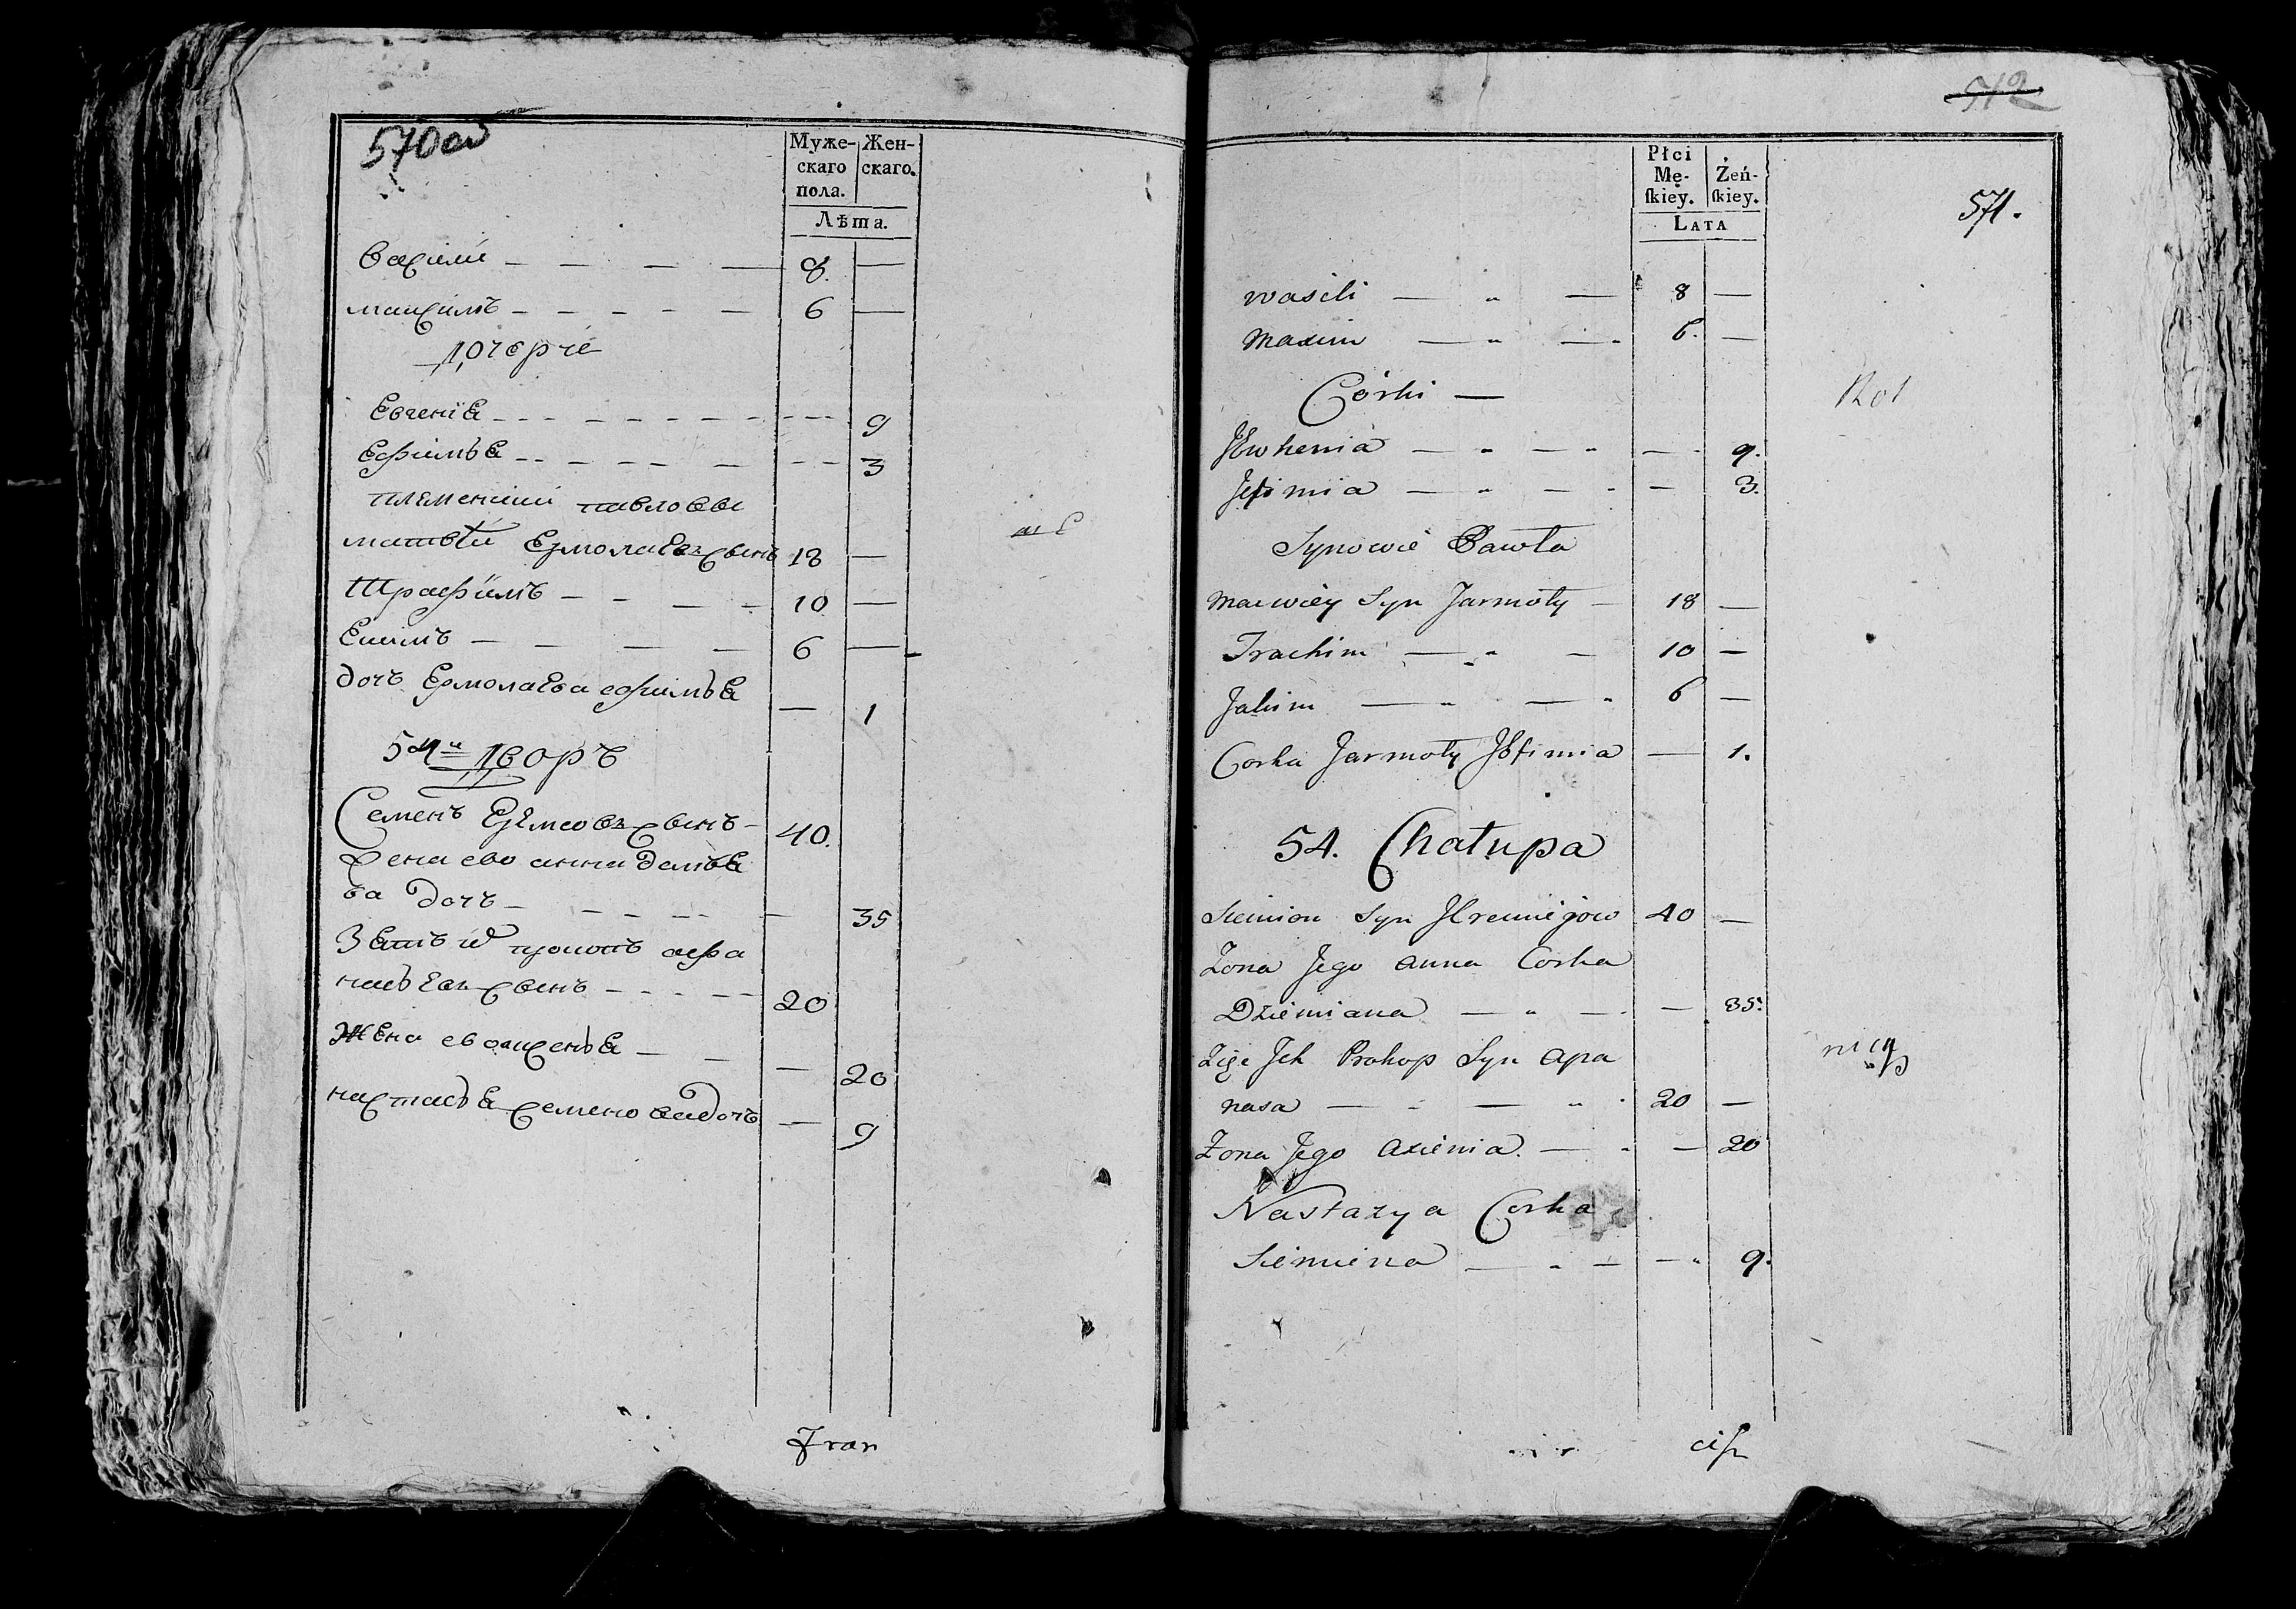 570об
Муже- Жен-
скаго скаго.
пола.
Лѣта.
Василий — — — — 8. —
Максимъ — — — — — 6 —
Дочерчи
Евгения — — — — — 9
Ефимья — — — — — 3
племеники павловы
матвѣй Ермолаевъ сынъ 18 —
Трафимъ — — — — 10 —
Екимъ — — — — 6 —
дочь Ермолаева ефимья — 1
54й Дворъ
Семенъ Еремеовъ сынъ — 40.
Жена ево анна демья
ва дочь — — — — — 35
Зять их прокопъ афа
насьевъ сынъ — — — — 20
Жена ево аксенья — — — 20
настасья семенова дочь — 9
Fran
512
571.
Płci Żeń-
Mę- skiey.
skiey.
LATA
Wasili — " — 8 —
Maxim — " — 6. —
Córki —
Jewhenia — " — " — 9.
Jefimia — " — " — 3.
Synowie Pawła
Maciwiey Syn Jarmoły — 18 —
Trachim — " — 10 —
Jakim — " — " 6 —
Corka Jarmoły Jefimia — 1.
54. Chałupa
Siemion Syn Jeremiejow 40 —
Zona Jego Anna Corka
Dziemiana — " — — 35.
Zięc Jch Prokop Syn Apa
nasa — " — " 20 —
Zona Jego Axienia. — " — 20
Nastazya Corka
Siemiena — " — — " 9.